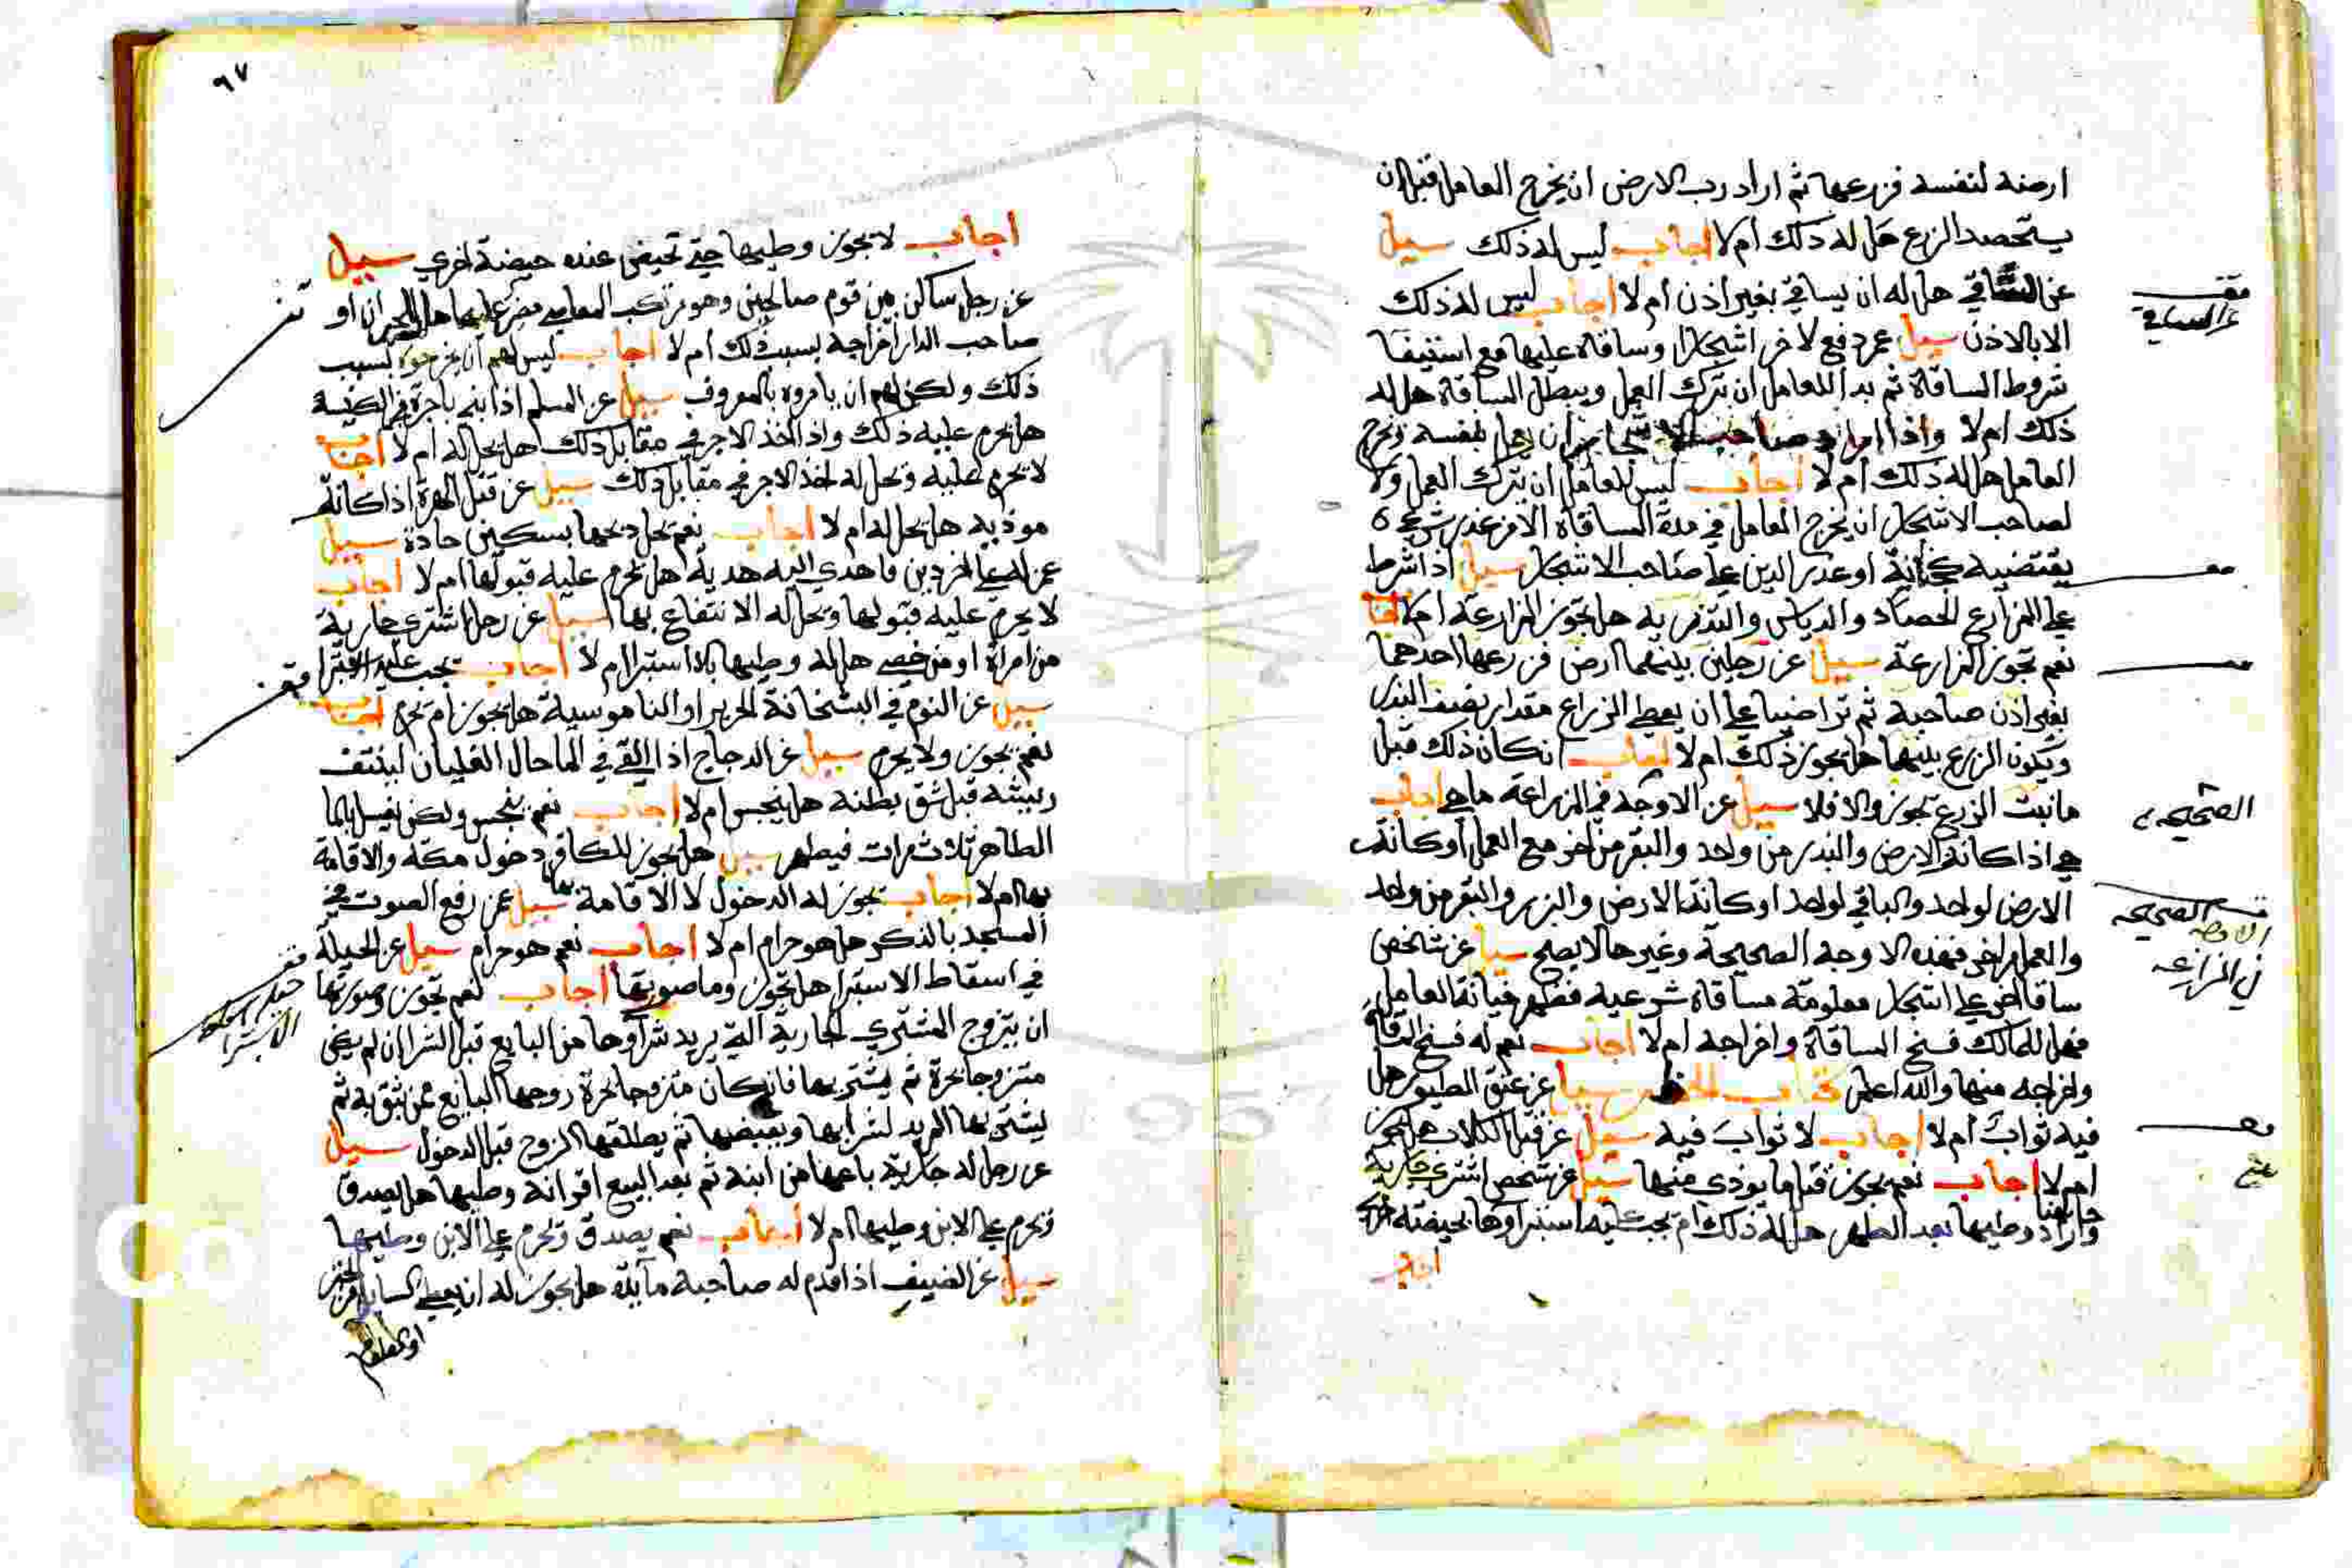 ارضه لنفسه فزرعها ثم اراد رب الارض ان يخرج العامل قبل ان
يستحصد الزرع هل له ذلك ام لا اجاب ليس له ذلك سيل
عن المساقي هل له ان يساقي بغير اذن ام لا اجاب ليس له ذلك
الا بالاذن سيل عمن دفع لاخر اشجارا وساقاه عليها مع استيفا
شروط المساقاة ثم بدا للعامل ان يترك العمل ويبطل المساقاة هل له
ذلك ام لا واذا اراد صاحب ان يعمل بنفسه ويخرج
العامل هل له ذلك ام لا اجاب ليس للعامل ان يترك العمل ولا
لصاحب الاشجار ان يخرج العامل في مدة المساقاة الا من عذر شرعي
يقتضيه كخيانة او عذر الدين على صاحب الاشجار سيل اذا شرط
على المزارع الحصاد والدياس والتذرية هل تجوز المزارعة ام لا اجاب
نعم تجوز المزارعة سيل عن رجلين بينهما ارض فزرعها احدهما
بغير اذن صاحبه ثم تراضيا على ان يعطي الزراع مقدار نصف البذر
ويكون الزرع بينهما هل يجوز ذلك ام لا اجاب انكان ذلك قبل
ما نبت الزرع يجوز والا فلا سيل عن الاوجه في المزراعة ما هي اجاب
هي اذا كانة الارض والبدر من واحد والبقر من اخر مع العمل او كانة
الارض لواحد والباقي لواحد او كانة الارض والبزر والبقر من واحد
والعمل من اخر فهذه الاوجه الصحيحة وغيرها لا يصح سيل عن شخص
ساقا اخر على اشجار معلومة مساقاة شرعية فظهر خيانة العامل
فهل للمالك فسخ المساقاة واخراجه ام لا اجاب نعم له فسخ المساقاة
واخراجه منها والله اعلم سيل عن عتق الطيور هل
فيه ثواب ام لا اجاب لا ثواب فيه سيل عن قتل الكلاب هل يجوز
ام لا اجاب نعم يجوز قتل ما يوذي منها سيل عن شخص اشترى جارية
واراد وطيها بعد الطهر هل له ذلك ام يجب عليه استبراوها بحيضة اخرى
اجاب
الصحيحه
قسم الصحيحه
الاوجه
في المزارعه
٩٧
اجاب لا يجوز وطيها حتى تحيض عنده حيضة اخرى سيل
عن رجل ساكن بين قوم صالحين وهو مرتكب المعاصي مصر عليها هل للجيران او
صاحب الدار اخراجه بسبب ذلك ام لا اجاب ليس لهم ان يخرجوه بسبب
ذلك ولكن لهم ان يامروه بالمعروف سيل عن المسلم اذا بنى باجرة في الكنيسة
هل يحرم عليه ذلك واذا اخذ الاجر في مقابل ذلك هل يحل له ام لا اجاب
لا يحرم عليه ويحل له اخذ الاجر في مقابل ذلك سيل عن قتل الهرة اذا كانة
موذية هل يحل له ام لا اجاب نعم يحل ذبحها بسكين حادة سيل
عمن له على اخر دين فاهدي اليه هدية هل يحرم عليه قبولها ام لا اجاب
لا يحرم عليه قبولها ويحل له الانتفاع بها سيل عن رجل اشترى جارية
من امراة او من خصي هل له وطيها بلا استبرا ام لا اجاب يجب عليه الاستبرا
سيل عن النوم في البشخانة الحرير او الناموسية هل يجوز ام يحرم اجاب
نعم يجوز ولا يحرم سيل عن الدجاج اذا القي في الماحال الغليان لينتف
ريشه قبل شق بطنه هل ينجس ام لا اجاب نعم ينجس ولكن يغسل بالما
الطاهر ثلاث مرات فيطهر سيل هل يجوز للكافر دخول مكة والاقامة
بها ام لا اجاب يجوز له الدخول لا الاقامة بها سيل عن رفع الصوت في
المسجد بالذكر هل هو حرام ام لا اجاب نعم هو حرام سيل عن الحيلة
في اسقاط الاستبرا هل تجوز وما صورتها اجاب نعم تجوز وصورتها
ان يتزوج المشتري الجارية التي يريد شراوها من البايع قبل الشرا ان لم يكن
متزوجا بحرة ثم يشتريها فان كان متزوجا بحرة زوجها البايع ممن يثق به ثم
يشتريها المريد لشرايها ويقبضها ثم يطلقها الزوج قبل الدخول سيل
عن رجل له جارية باعها من ابنه ثم بعد البيع اقر انه وطيها هل يصدق
ويحرم على الابن وطيها ام لا اجاب نعم يصدق ويحرم على الابن وطيها
سيل عن الضيف اذا قدم له صاحبه مايدة هل يجوز له ان يعطي السايل من الخبز